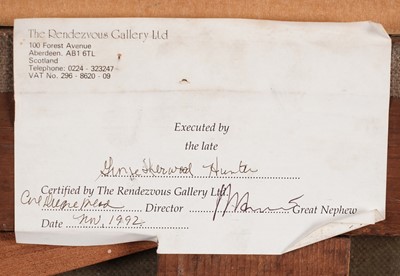 The Rendezvous Gallery Ltd
100 Forest Avenue
Aberdeen. AB1 6TL
Scotland
Telephone: 0224 - 323247
VAT No. 296 - 8620 - 09
Executed by
the late
George Sherwood Hunter
Certified by The Rendezvous Gallery Ltd.
Director Great Nephew
Date Nov, 1992